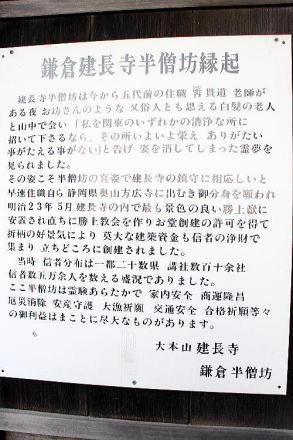 鎌倉建長寺半僧坊縁起
建長寺半僧坊は今から五代前の住職 霄貫道 老師が
ある夜 お坊さんのような 又俗人とも思える白髪の老人
と山中で会い「私を関東のいずれかの清浄な所に
招いて下さるなら、その所いよいよ栄え ありがたい
事がたえる事がない」と告げ 姿を消してしまった霊夢を
見られました。
その姿こそ半僧坊の真姿で建長寺の鎮守に相応しいと
早速住職自ら静岡県奥山方広寺に出むき御分身を願われ
明治23年5月建長寺の内で最も景色の良い勝上嶽に
安置され直ちに勝上教会を作りお堂創建の許可を得て
折柄の好景気により 莫大な建築資金も信者の浄財で
集まり 立ちどころに創建されました。
当時 信者分布は一都二十数県 講社数百十余社
信者数五万余人を数える盛況でありました。
ここ半僧坊は霊験あらたかで 家内安全 商運隆昌
厄災消除 安産守護 大漁祈願 交通安全 合格祈願等々
の御利益はまことに尽大なものがあります。
大本山 建長寺
鎌倉 半僧坊